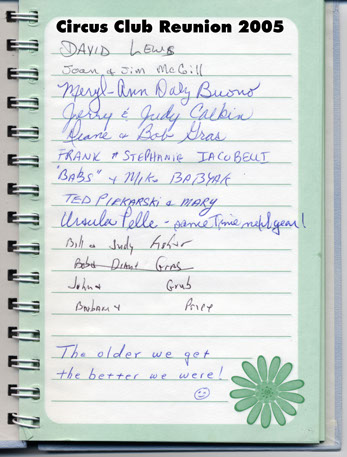 Circus Club Reunion 2005
DAVID LEWIS
Joan & Jim McGill
Meryl-Ann Daly Buono
Jerry & Judy Calkin
Diane & Bob Gras
FRANK & STEPHANIE IACOBELLI
"BABS" & MIKE BABYAK
TED PIEKARSKI & MARY
Ursula Pelle - same Time next year!
Bill & Judy
Bob & Diane Gras
John & Grub
Barbara &
The older we get
the better we were!